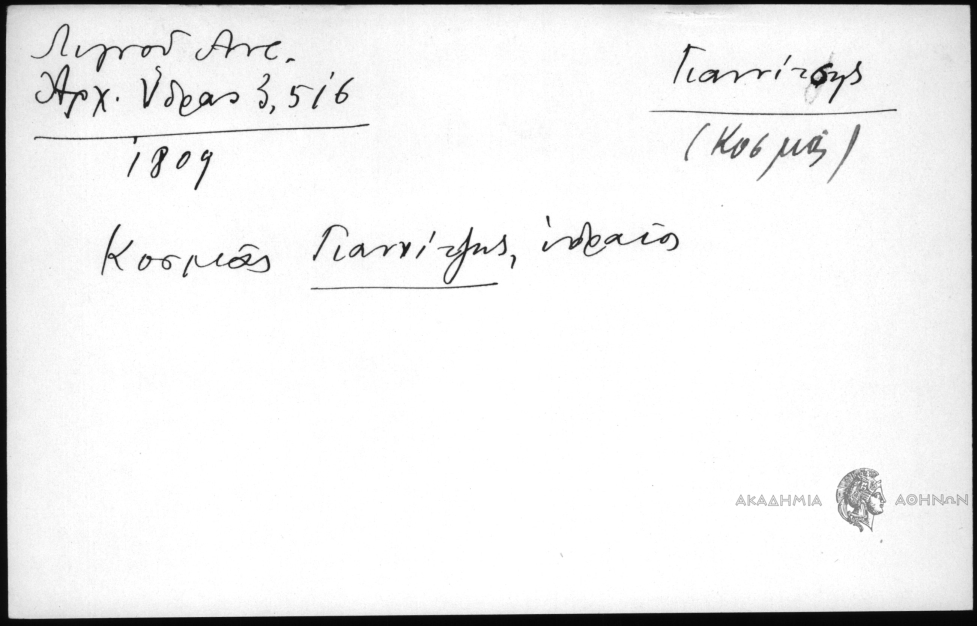 Λιγνοῦ Ἀντ.
Ἀρχ. Ὕδρας 3, 516
1809
Γιαννίτσης
(Κοσμᾶς)
Κοσμᾶς Γιαννίτζης, ὑδραῖος
ΑΚΑΔΗΜΙΑ ΑΘΗΝΩΝ